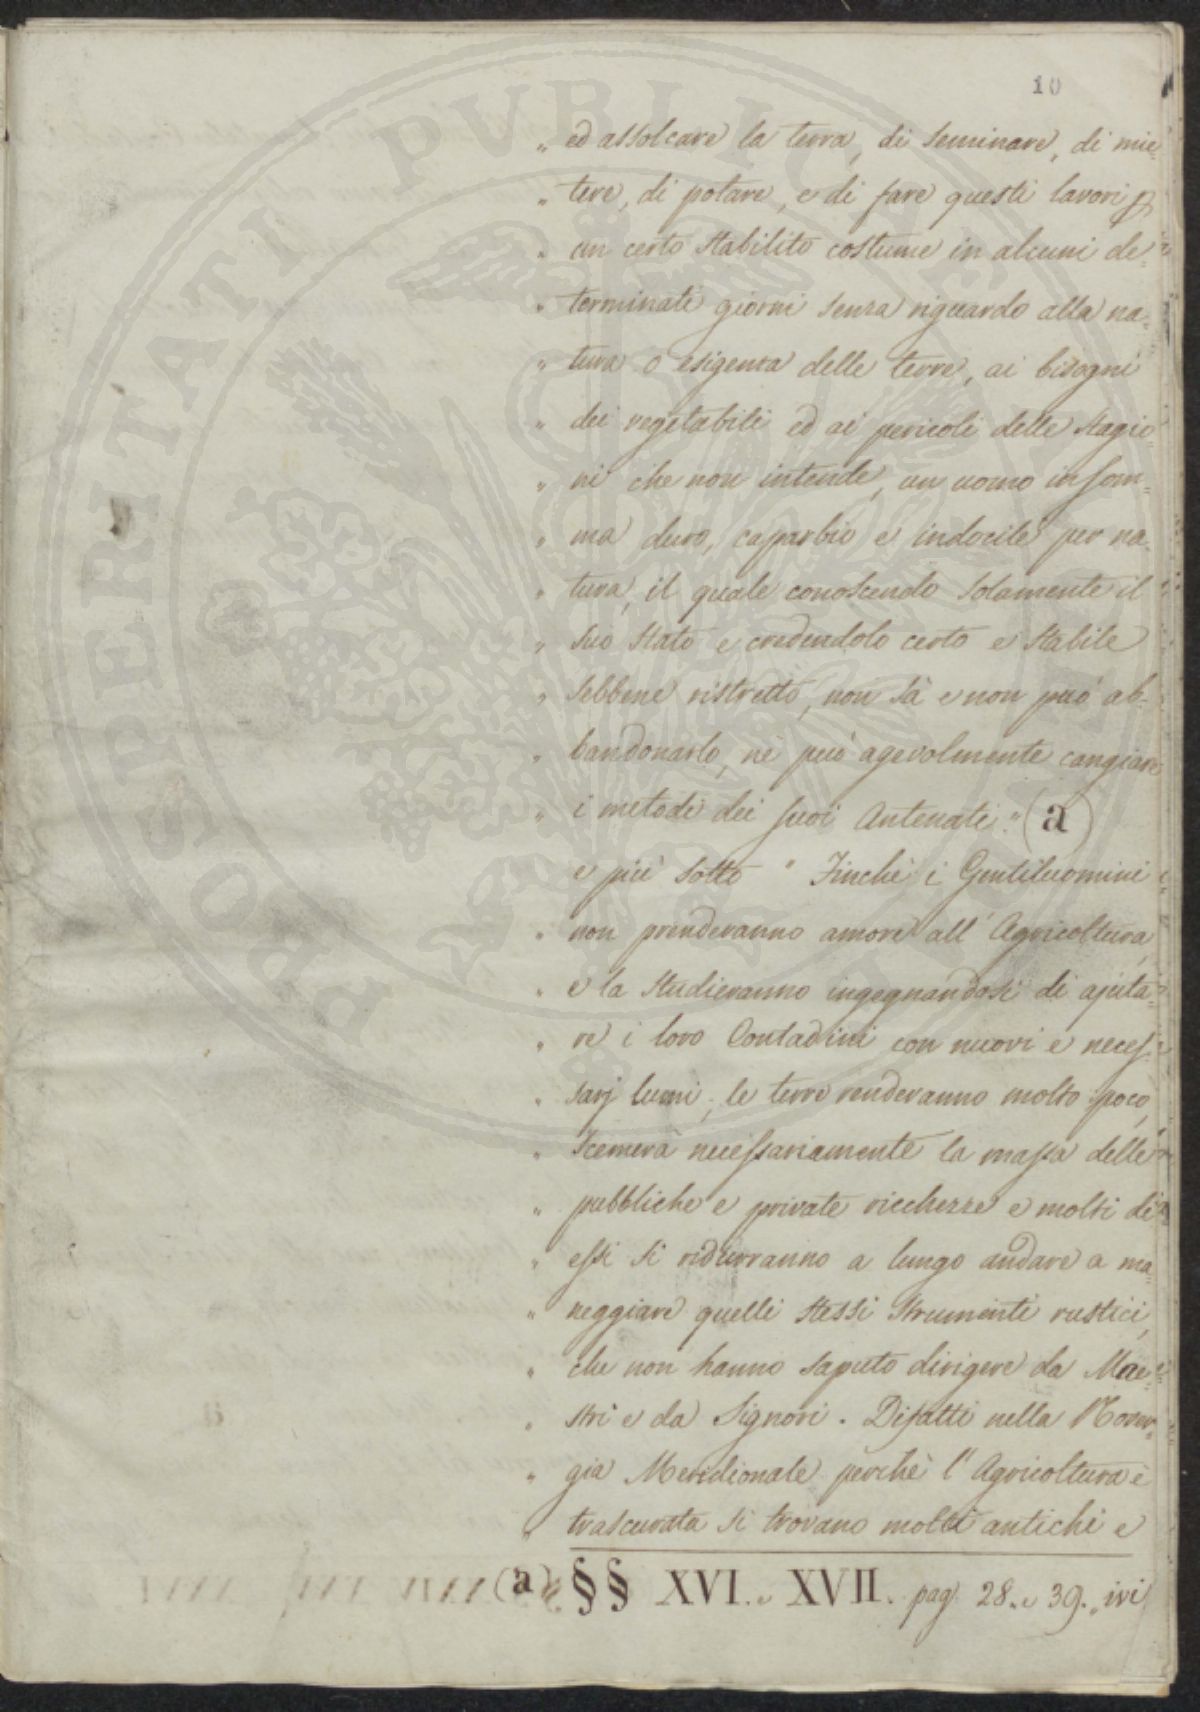 10
„ ed assolcare la terra, di seminare, di mie-
„ tere, di potare, e di fare questi lavori p
„ un certo stabilito costume in alcuni de-
„ terminati giorni senza riguardo alla na-
„ tura o esigenza delle terre, ai bisogni
„ dei vegetabili ed ai pericoli delle stagio-
„ ni che non intende, un uomo insom-
„ ma duro, caparbio e indocile per na-
„ tura, il quale conoscendo solamente il
„ suo stato e credendolo certo e stabile
„ sebbene ristretto, non sà e non può ab-
„ bandonarlo, nè può agevolmente cangiare
„ i metodi dei suoi Antenati." (a)
e più sotto " Finchè i Gentiluomini
„ non prenderanno amore all' Agricoltura,
„ e la studieranno ingegnandosi di ajuta-
„ re i loro Contadini con nuovi e neces-
„ sarj lumi, le terre renderanno molto poco,
„ scemerà necessariamente la massa delle
„ pubbliche e private ricchezze e molti di
„ essi si ridurranno a lungo andare a ma-
„ neggiare quelli stessi strumenti rustici,
„ che non hanno saputo dirigere da Mae-
„ stri e da Signori. Difatti nella Norve-
„ gia Meridionale perchè l'Agricoltura è
„ trascurata si trovano molti antichi e
(a) §§ XVI. e XVII. pag. 28. e 39. ivi
PROSPERITATI PVBLICAE